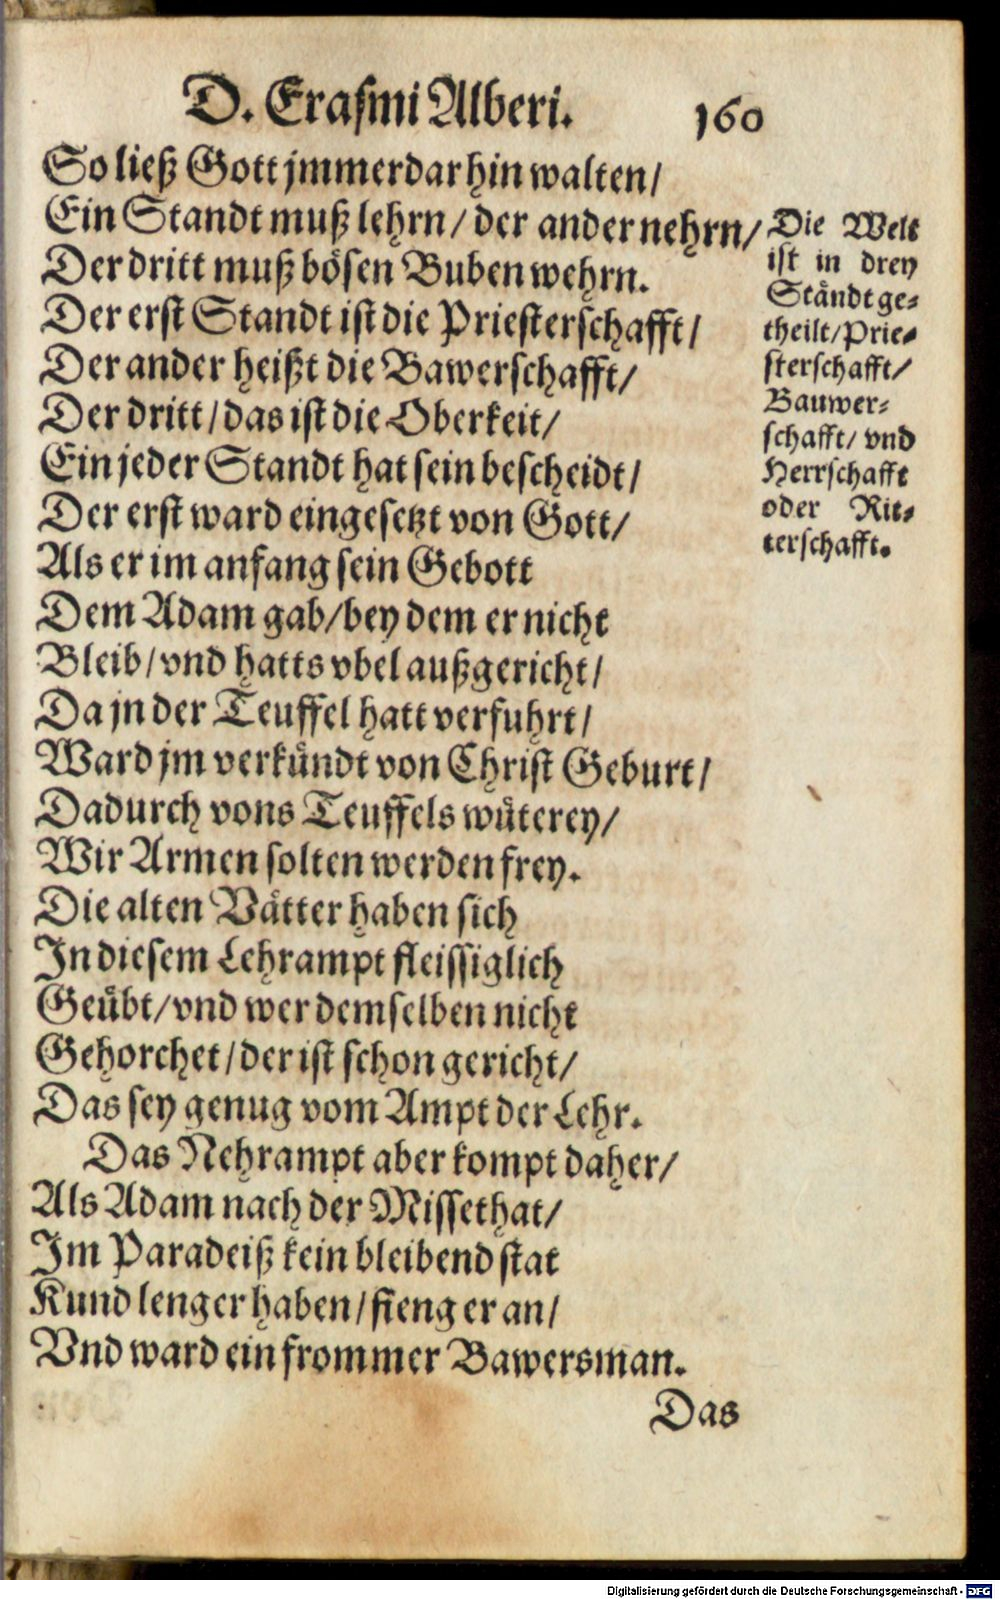 D. Erasmi Alberi. 160
So ließ Gott jmmerdar hin walten/
Ein Standt muß lehrn/ der ander nehrn/
Der dritt muß bösen Buben wehrn.
Der erst Standt ist die Priesterschafft/
Der ander heißt die Bawerschafft/
Der dritt/ das ist die Oberkeit/
Ein jeder Standt hat sein bescheidt/
Der erst ward eingesetzt von Gott/
Als er im anfang sein Gebott
Dem Adam gab/ bey dem er nicht
Bleib/ vnd hatts vbel außgericht/
Da jn der Teuffel hatt verfuhrt/
Ward jm verkündt von Christ Geburt/
Dadurch vons Teuffels wüterey/
Wir Armen solten werden frey.
Die alten Vätter haben sich
In diesem Lehrampt fleissiglich
Geübt/ vnd wer demselben nicht
Gehorchet/ der ist schon gericht/
Das sey genug vom Ampt der Lehr.
Das Nehrampt aber kompt daher/
Als Adam nach der Missethat/
Im Paradeiß kein bleibend stat
Kund lenger haben/ fieng er an/
Vnd ward ein frommer Bawersman.
Das
Die Welt
ist in drey
Ständt ge-
theilt/ Prie-
sterschafft/
Bauwer-
schafft/ vnd
Herrschafft
oder Rit-
terschafft.
Digitalisierung gefördert durch die Deutsche Forschungsgemeinschaft - DFG